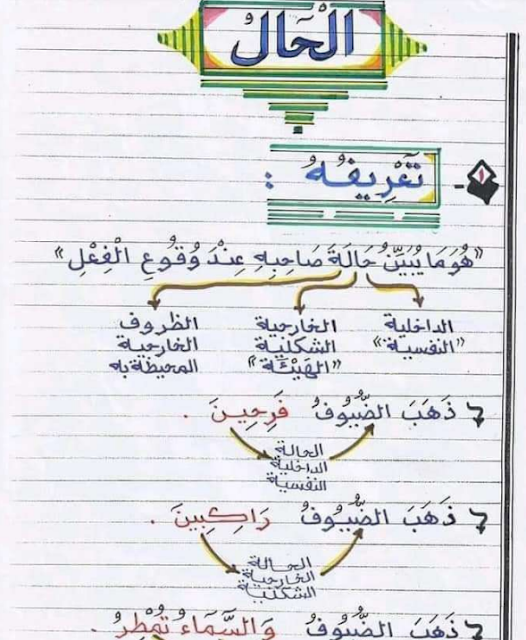 الْحَالُ
١ - تَعْرِيفُهُ :
"هُوَ مَا يُبَيِّنُ حَالَةَ صَاحِبِهِ عِنْدَ وُقُوعِ الْفِعْلِ"
الداخلية الخارجية الظروف
"النفسية" الشكلية الخارجية
"الهَيْئَة" المحيطة به
ذَهَبَ الضُّيُوفُ فَرِحِينَ .
الحالة
الداخلية
النفسية
ذَهَبَ الضُّيُوفُ رَاكِبِينَ .
الحالة
الخارجية
الشكلية
ذَهَبَ الضُّيُوفُ وَالسَّمَاءُ تُمْطِرُ .